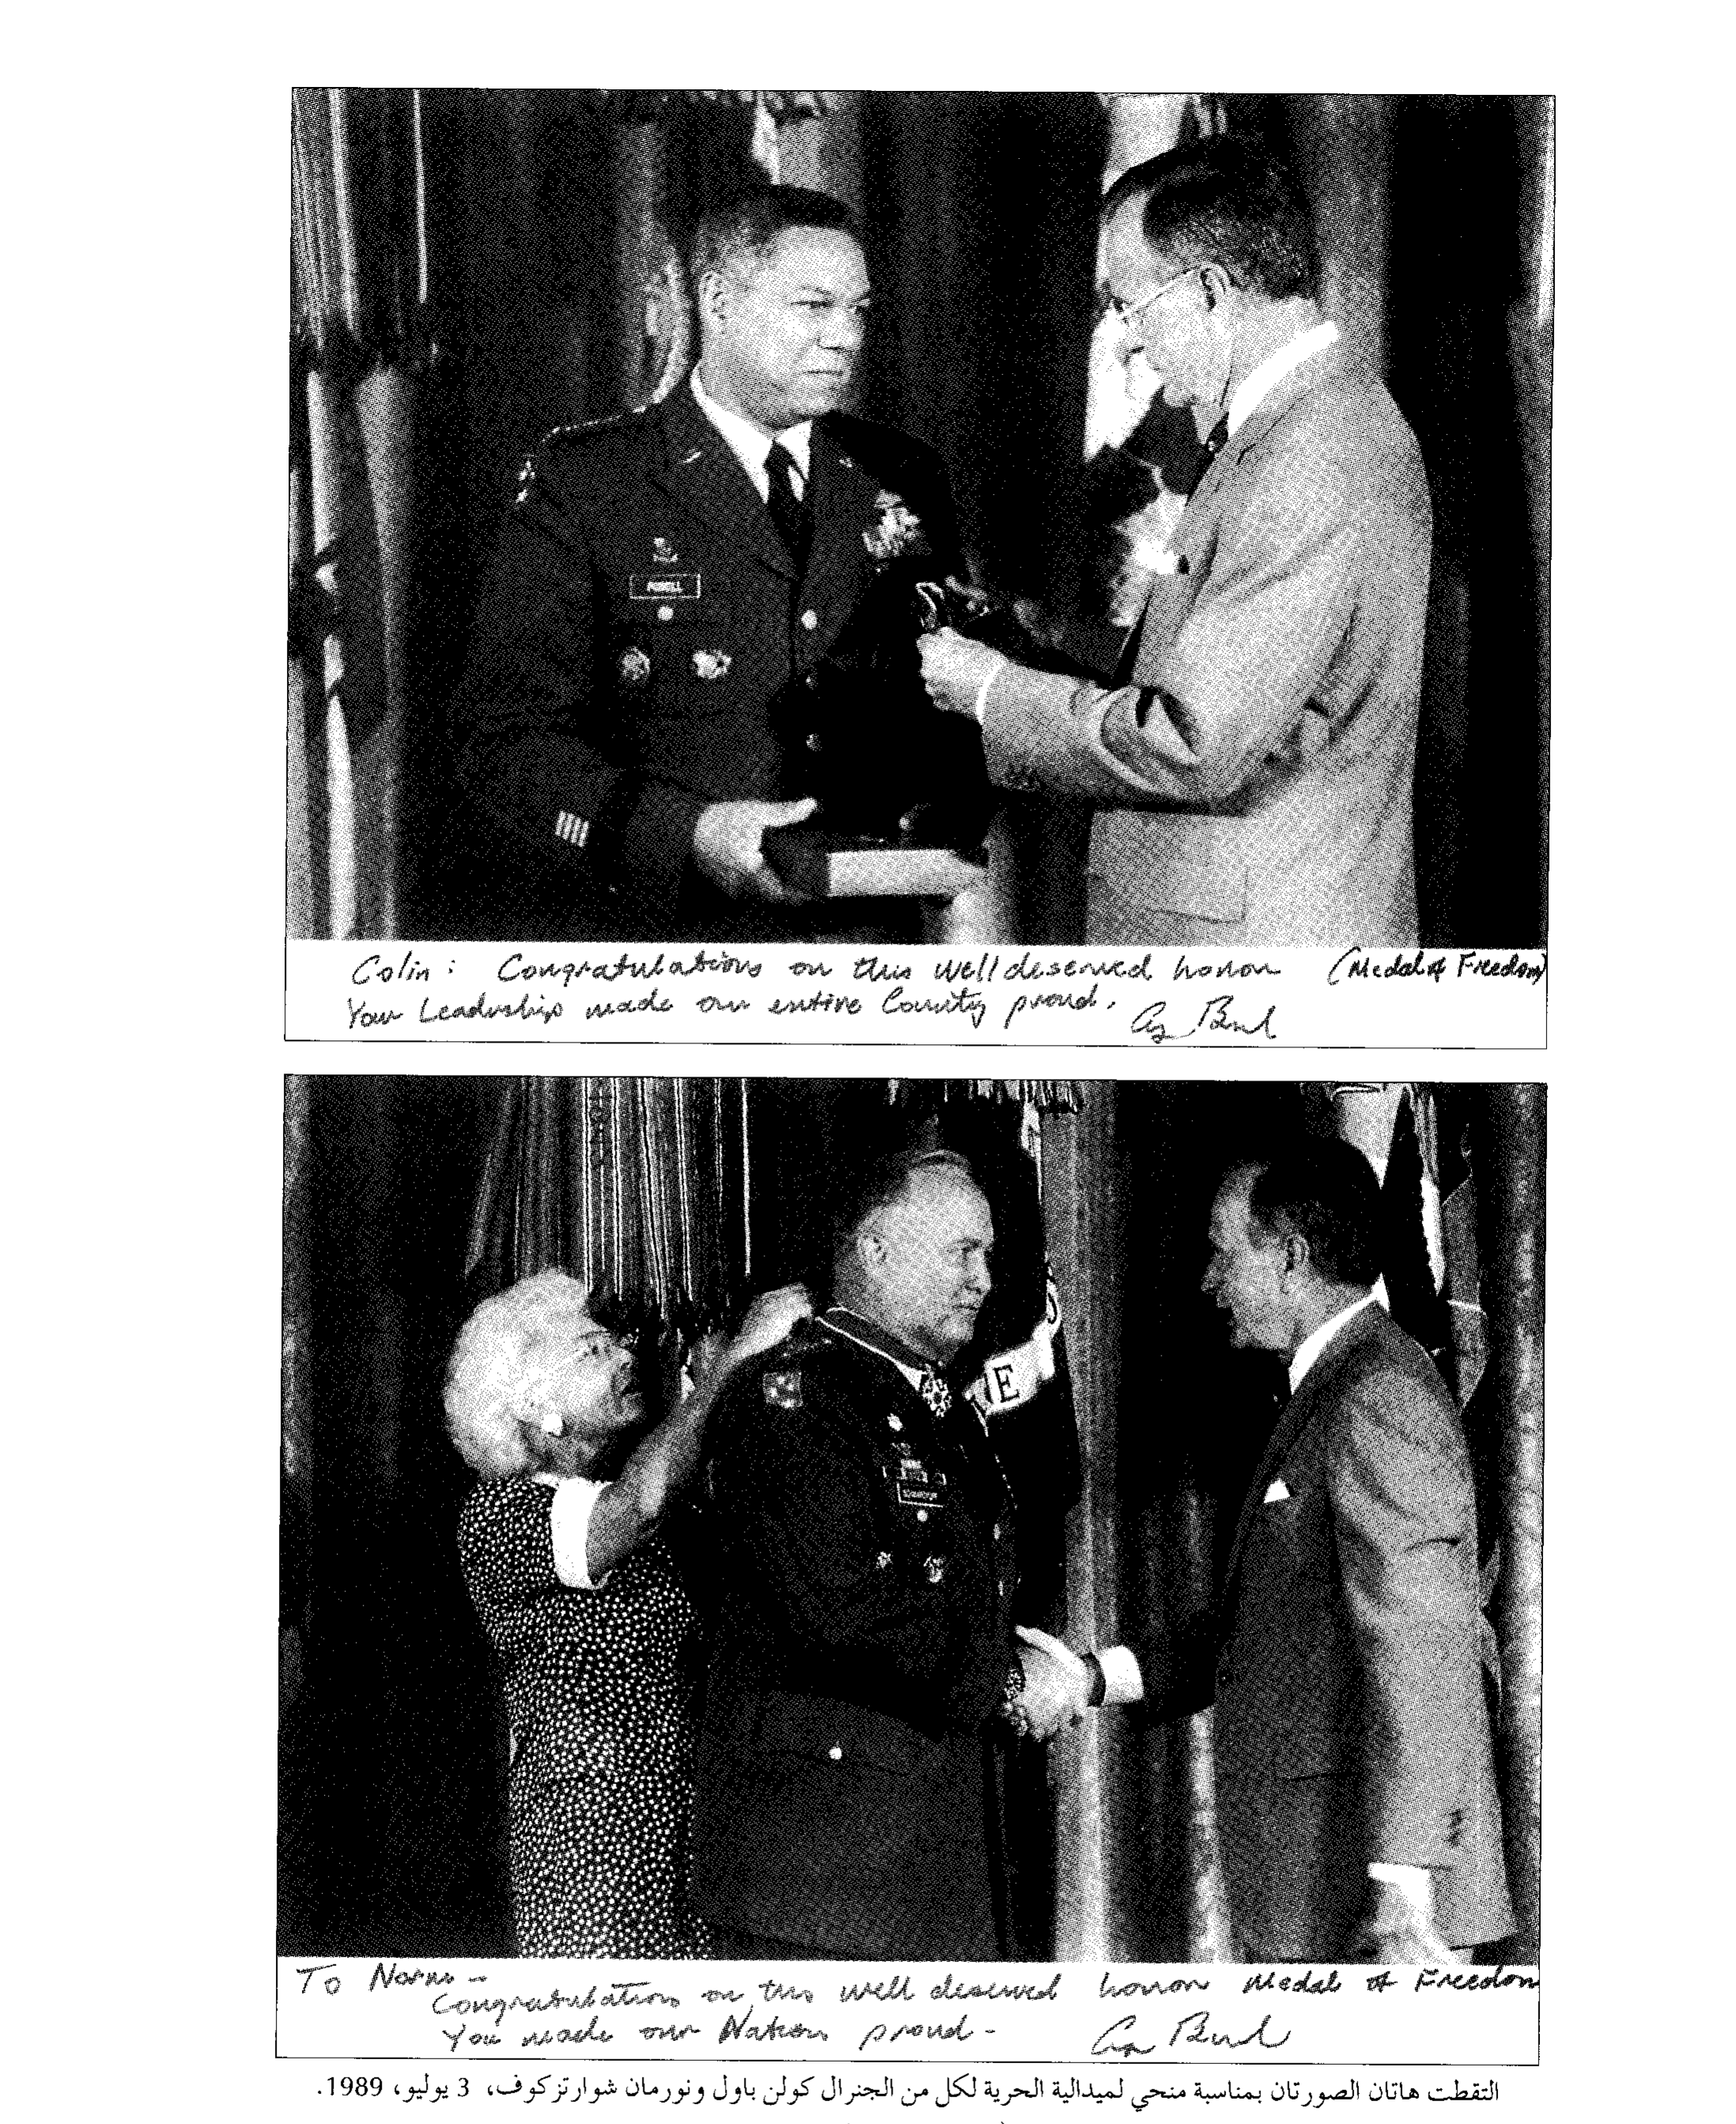 POWELL
Colin: Congratulations on this well deserved honor (Medal of Freedom)
Your Leadership made our entire Country proud.
E
To Norm -
Congratulations on this well deserved honor Medal of Freedom
You made our Nation proud -
التقطت هاتان الصورتان بمناسبة منحي لميدالية الحرية لكل من الجنرال كولن باول ونورمان شوارتزكوف، 3 يوليو، 1989.